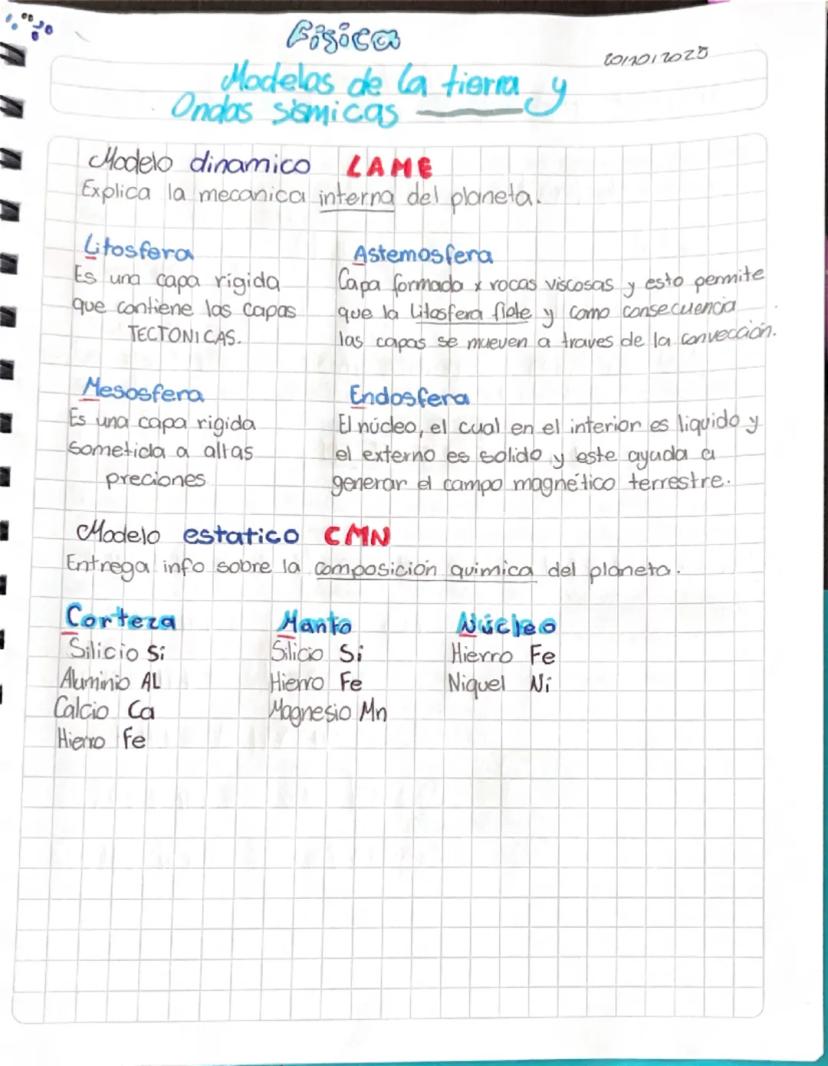 Física
20/10/2025
Modelos de la tierra y
Ondas sismicas
Modelo dinamico LAME
Explica la mecanica interna del planeta.
Litosfera
Es una capa rigida
que contiene las capas
TECTONICAS.
Astemosfera
Capa formada x rocas viscosas y esto permite
que la Litosfera flote y como consecuencia
las capas se mueven a traves de la convección.
Mesosfera
Es una capa rigida
sometida a altas
preciones
Endosfera
El núcleo, el cual en el interior es liquido y
el externo es solido y este ayuda a
generar el campo magnético terrestre.
Modelo estatico CMN
Entrega info sobre la composición quimica del planeta.
Corteza
Silicio Si
Aluminio AL
Calcio Ca
Hierro Fe
Manto
Silicio Si
Hierro Fe
Magnesio Mn
Núcleo
Hierro Fe
Niquel Ni